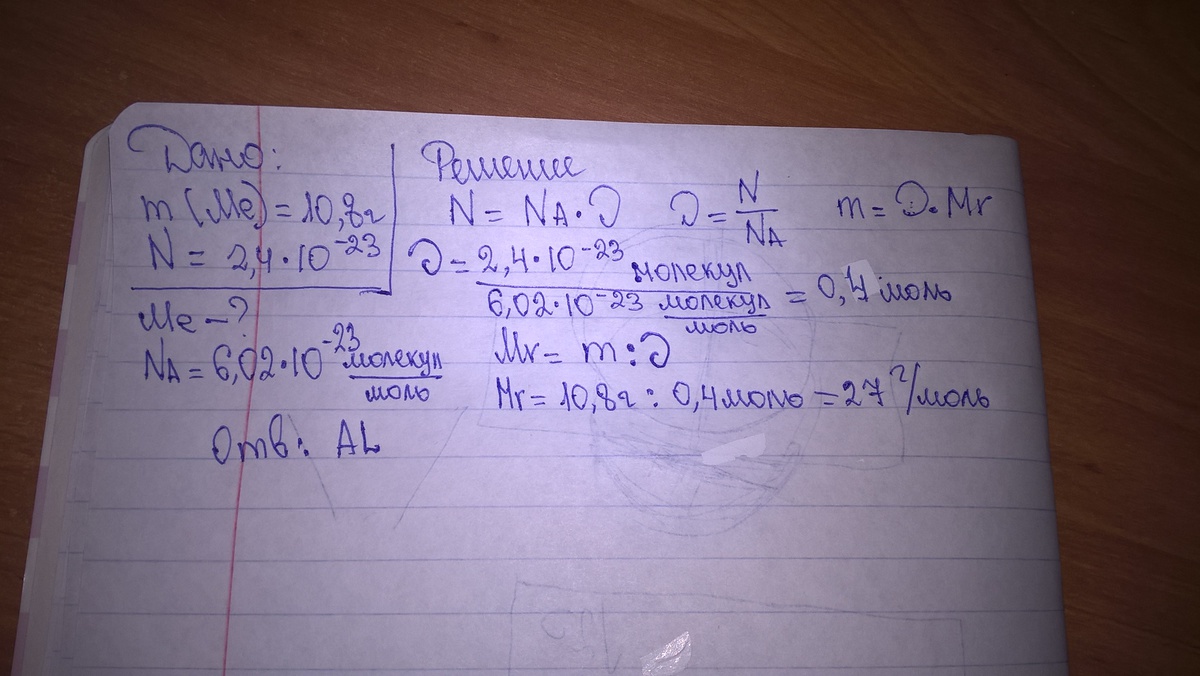 Дано:
m (Me) = 10,8г
N = 2,4·10⁻²³
Me – ?
NA = 6,02·10⁻²³ молекул/моль
Решение
N = NA · ϑ ϑ = N/NA m = ϑ · Mr
ϑ = 2,4·10⁻²³ молекул / 6,02·10⁻²³ молекул/моль = 0,4 моль
Mr = m : ϑ
Mr = 10,8г : 0,4 моль = 27 г/моль
Отв: AL